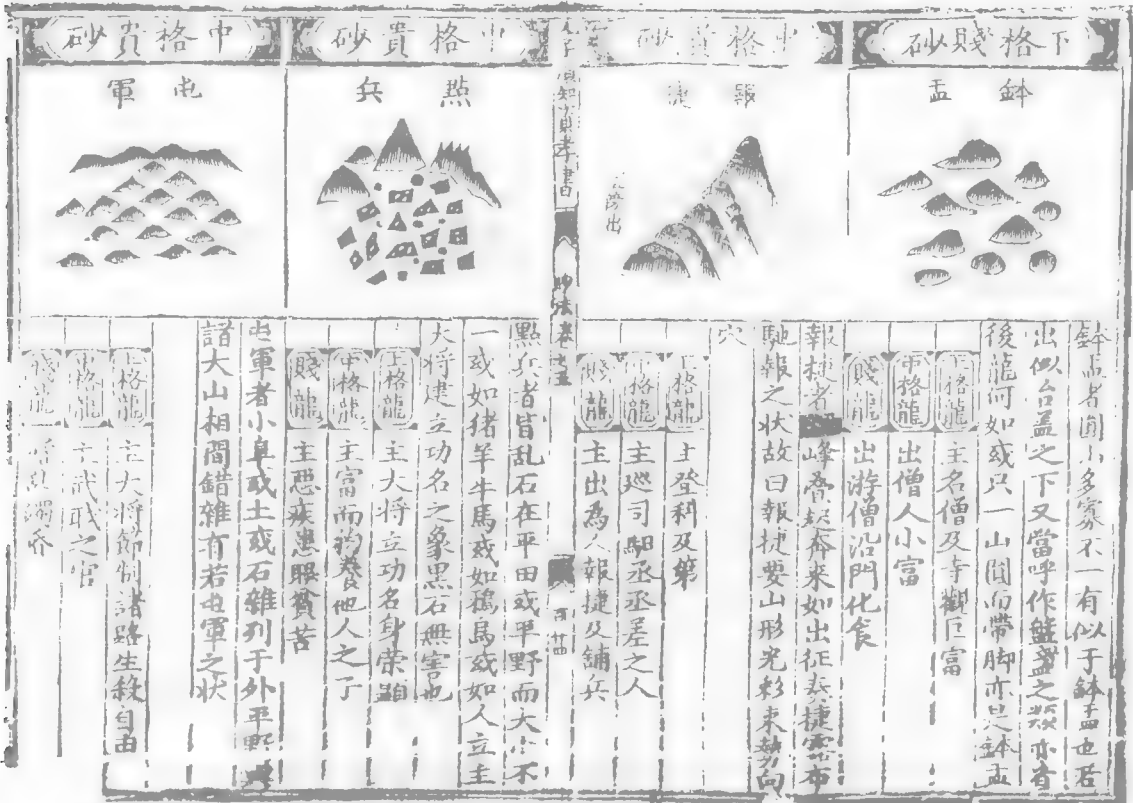 下格賤砂
鉢盂
鉢盂者圓山多寡不一有似于鉢盂也若
出似台盖之下又當呼作盤盞之類亦看
後龍何如或只一山圓而帶脚亦是鉢盂
上格龍 主名僧及寺觀巨富
中格龍 出僧人小富
賤龍 出遊僧沿門化食
中格貴砂
報捷
旁出
報捷者 峰叠起奔來如出征奏捷露布
馳報之状故曰報捷要山形光彩来勢向
穴
上格龍 主登科及第
中格龍 主廵司馹丞丞差之人
賤龍 主出為人報捷及舖兵
人子須知資孝書
砂法卷十五
百廿四
中格貴砂
㸃兵
點兵者皆乱石在平田或平野而大小不
一或如猪羊牛馬或如鴉鳥或如人立主
大将建立功名之象黒石無害也
上格龍 主大将立功名身荣顕
中格龍 主富而豢養他人之丁
賤龍 主惡疾患眼貧苦
中格貴砂
屯軍
屯軍者小阜或土或石雜列于外平野與
諸大山相間錯雜有若屯軍之状
上格龍 主大将節制諸路生殺自由
中格龍 主武職之官
賤龍